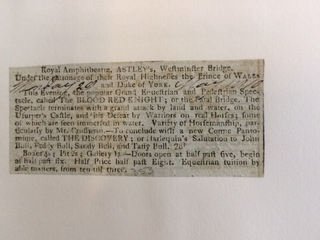 Royal Amphitheatre, ASTLEY's, Westminster Bridge.
Under the Patronage of their Royal Highnesses the Prince of WALES
and Duke of YORK.
This Evening, the popular Grand Equestrian and Pedestrian Spec-
tacle, called The BLOOD RED KNIGHT; or the Fatal Bridge. The
Spectacle terminates with a grand attack by land and water, on the
Usurper's Castle, and his Defeat by Warriors on real Horses; some
of which are seen immersed in water. Variety of Horsemanship, par-
ticularly by Mr.
To conclude with a new Comic Panto-
mime, called THE DISCOVERY; or Harlequin's Salutation to John
Bull, Paddy Bull, Sandy Bull, and Taffy Bull.
Boxes 4s; Pit 2s; Gallery 1s—Doors open at half past five, begin
at half past six. Half Price half past Eight. Equestrian tuition by
able masters, from ten till three.